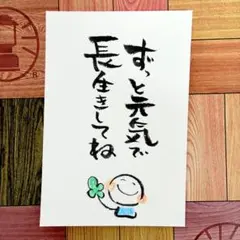 ずっと元気で
長生きしてね